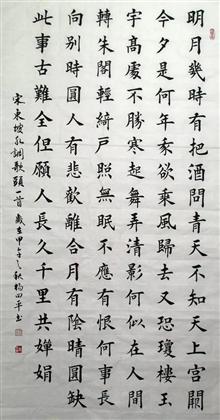 明月幾時有把酒問青天不知天上宮闕
今夕是何年我欲乘風歸去又恐瓊樓玉
宇高處不勝寒起舞弄清影何似在人間
轉朱閣輕綺戶照無眠不應有恨何事長
向別時圓人有悲歡離合月有陰晴圓缺
此事古難全但願人長久千里共嬋娟
宋東坡水調歌頭一首 歲在甲午之秋楊四平書